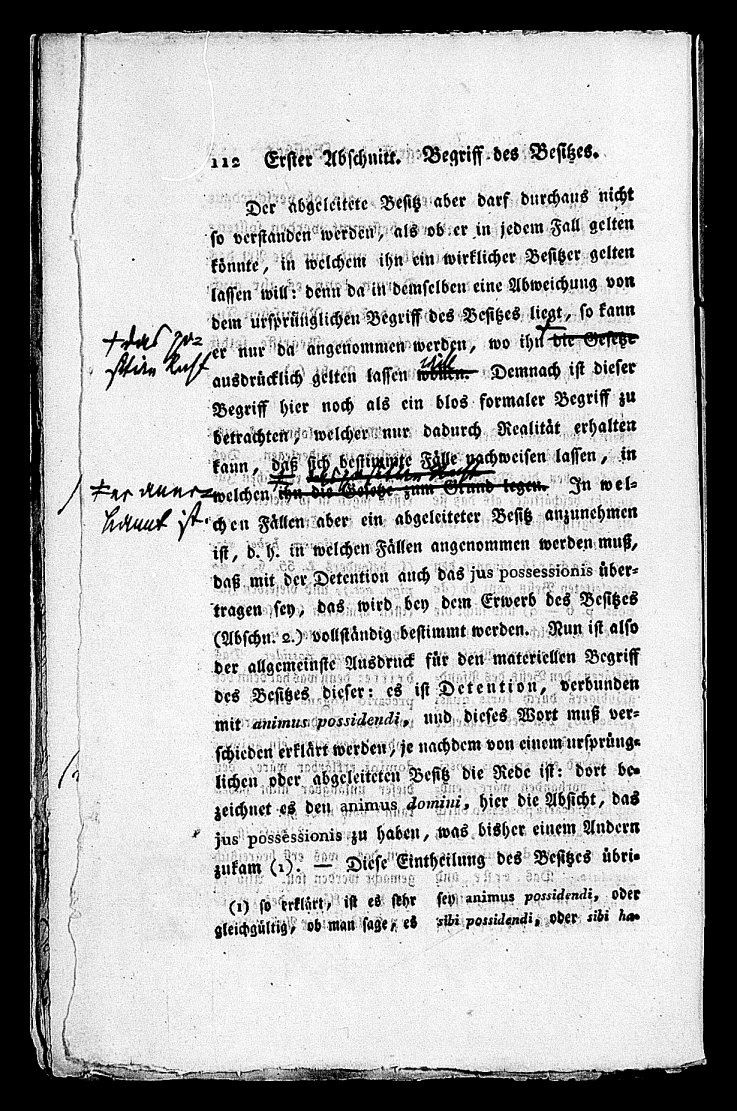 112 Erster Abschnitt. Begriff des Besitzes.
Der abgeleitete Besitz aber darf durchaus nicht
so verstanden werden, als ob er in jedem Fall gelten
könnte, in welchem ihn ein wirklicher Besitzer gelten
lassen will: denn da in demselben eine Abweichung von
dem ursprünglichen Begriff des Besitzes liegt, so kann
+das po-
er nur da angenommen werden, wo ihn die Gesetze
sitive Recht
will
ausdrücklich gelten lassen wollen. Demnach ist dieser
Begriff hier noch als ein blos formaler Begriff zu
betrachten, welcher nur dadurch Realität erhalten
kann, daß sich bestimmte Fälle nachweisen lassen, in
+er aner-
welchen ihn die Gesetze zum Grund legen. In wel-
kannt ist.
chen Fällen aber ein abgeleiteter Besitz anzunehmen
ist, d. h. in welchen Fällen angenommen werden muß,
daß mit der Detention auch das jus possessionis über-
tragen sey, das wird bey dem Erwerb des Besitzes
(Abschn. 2.) vollständig bestimmt werden. Nun ist also
der allgemeinste Ausdruck für den materiellen Begriff
des Besitzes dieser: es ist Detention, verbunden
mit animus possidendi, und dieses Wort muß ver-
schieden erklärt werden, je nachdem von einem ursprüng-
lichen oder abgeleiteten Besitz die Rede ist: dort be-
zeichnet es den animus domini, hier die Absicht, das
jus possessionis zu haben, was bisher einem Andern
zukam (1). — Diese Eintheilung des Besitzes übri-
(1) so erklärt, ist es sehr
gleichgültig, ob man sage, es
sey animus possidendi, oder
sibi possidendi, oder sibi ha-